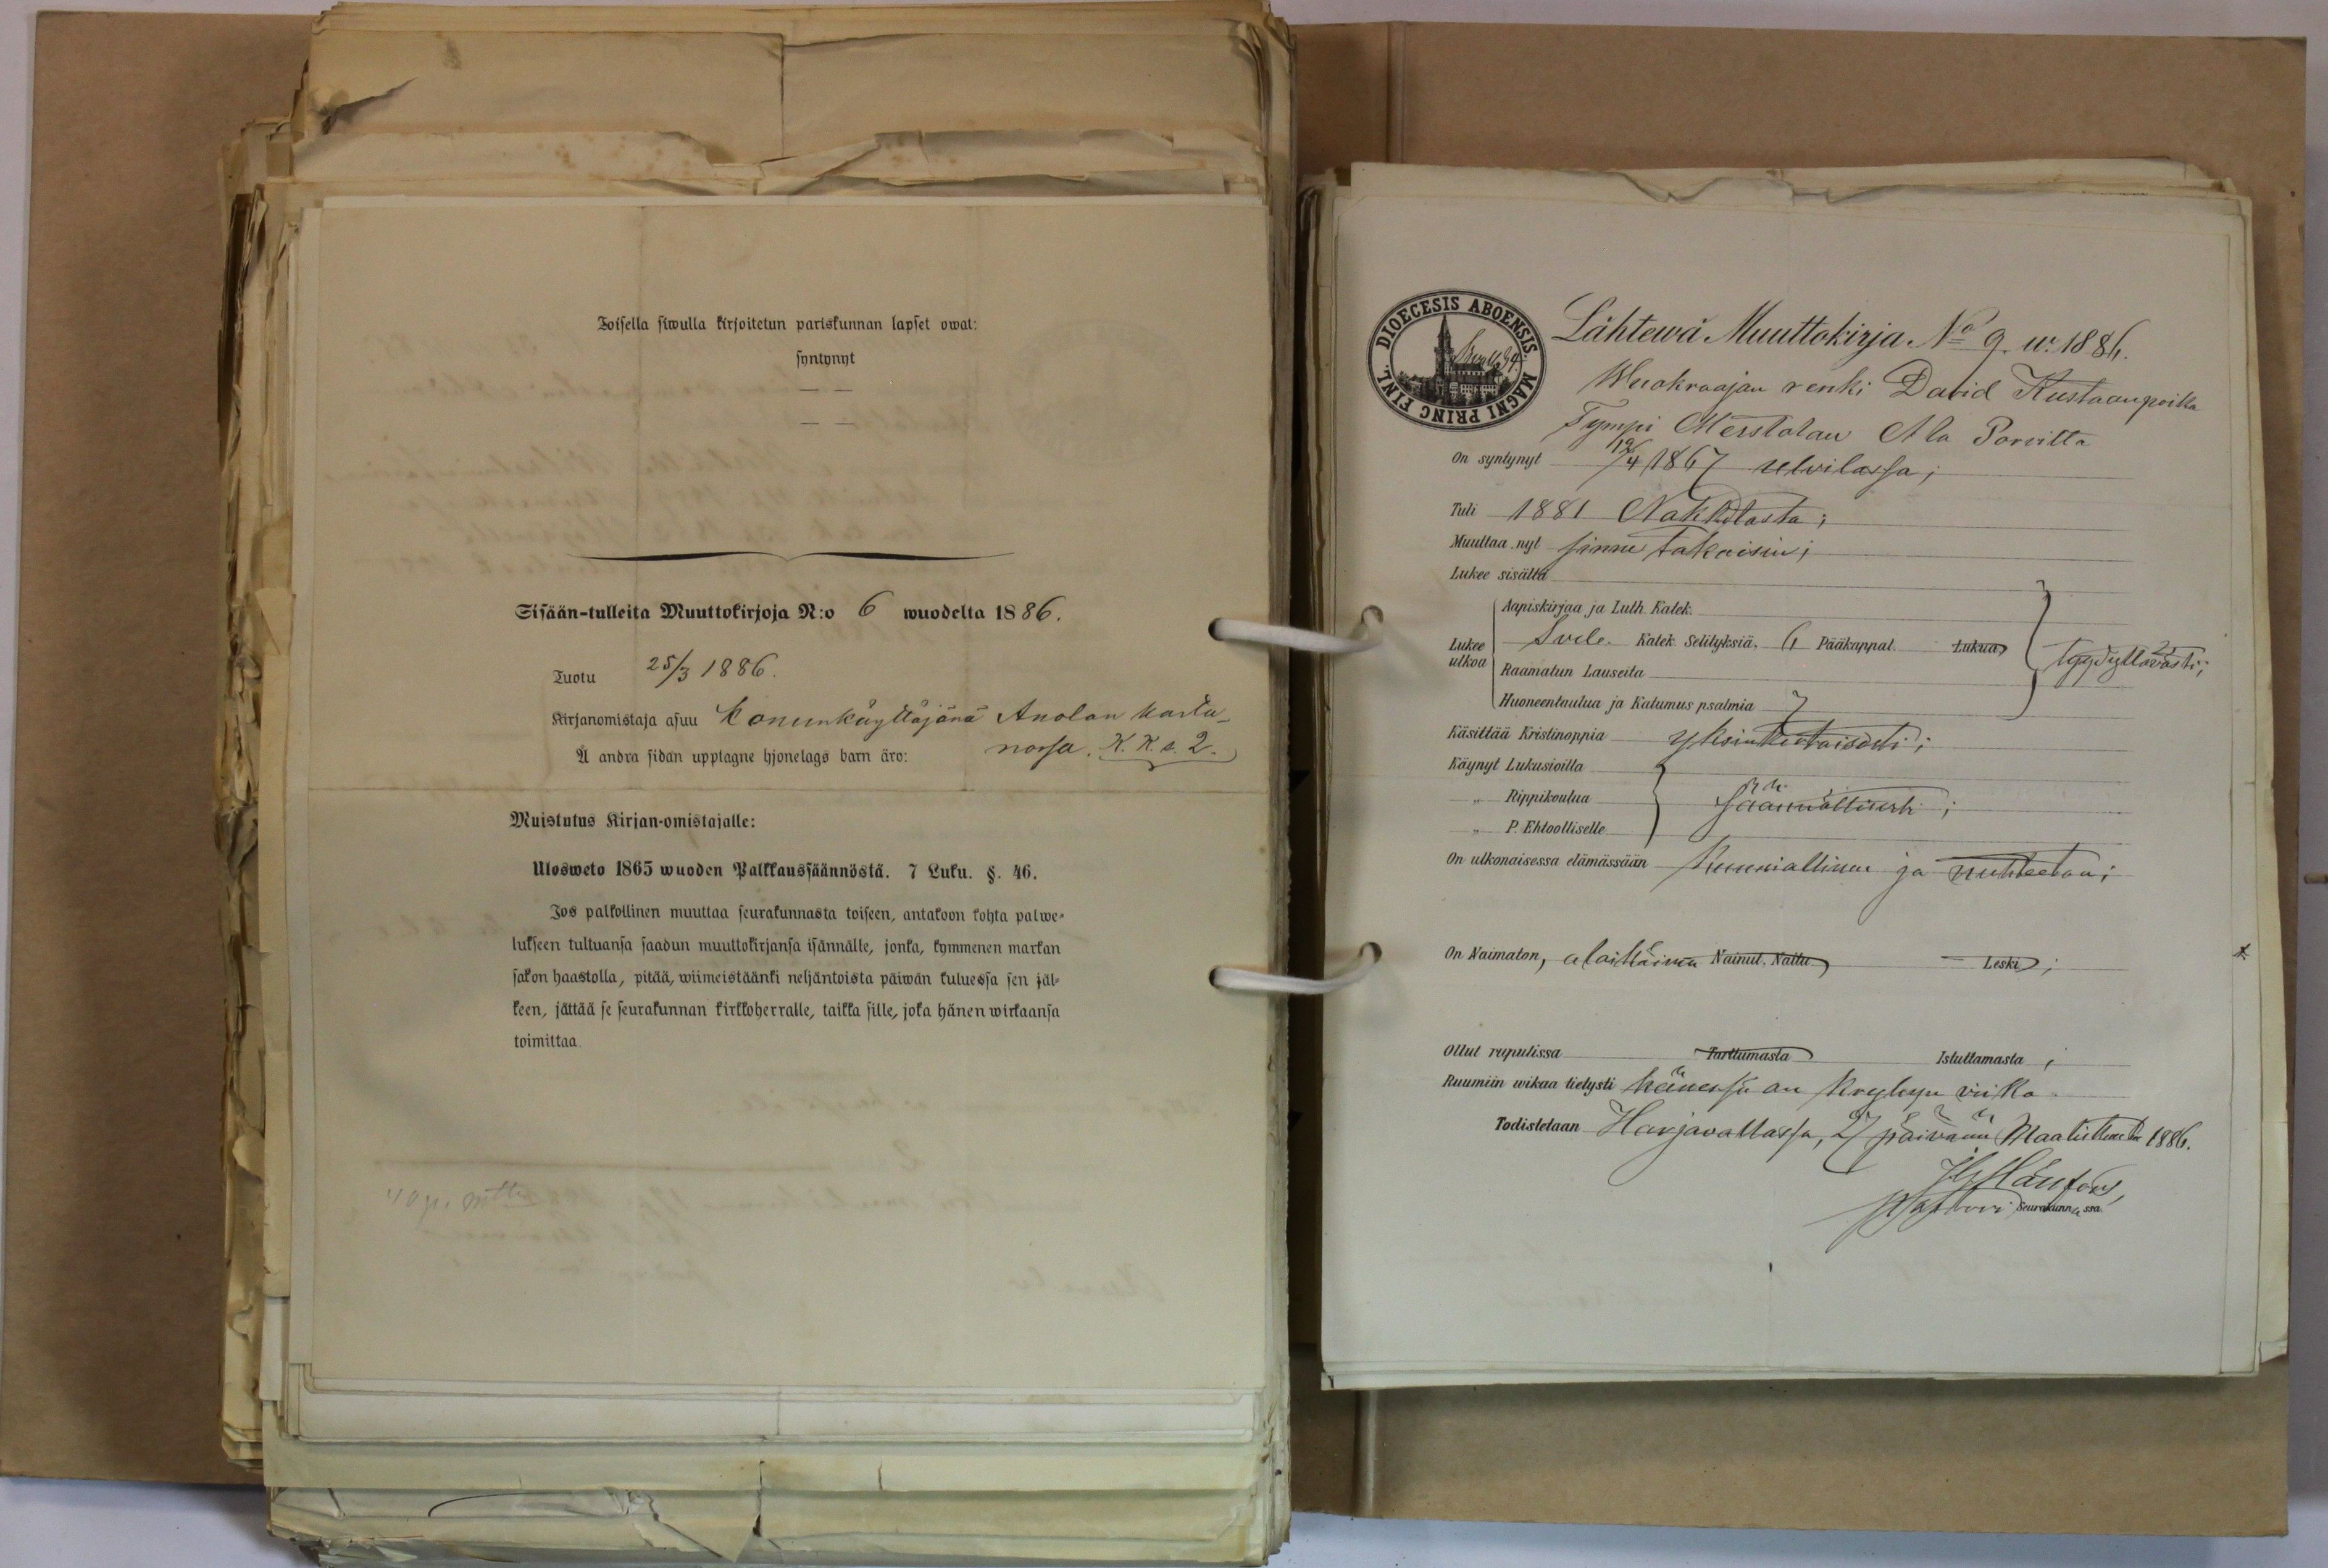 Toisella siwulla kirjoitetun pariskunnan lapset owat:
syntynyt
— —
— —
Sisään-tulleita Muuttokirjoja N:o 6 wuodelta 1886.
Tuotu 25/3 1886.
Kirjanomistaja asuu konunkäyttäjänä Anolan karta-
nossa. K. K. s. 2.
Å andra sidan upptagne hjonelags barn äro:
Muistutus Kirjan-omistajalle:
Ulosweto 1865 wuoden Palkkaussäännöstä. 7 Luku. §. 46.
Jos palkollinen muuttaa seurakunnasta toiseen, antakoon kohta palwe-
lukseen tultuansa saadun muuttokirjansa isännälle, jonka, kymmenen markan
sakon haastolla, pitää, wiimeistäänki neljäntoista päiwän kuluessa sen jäl-
keen, jättää se seurakunnan kirkkoherralle, taikka sille, joka hänen wirkaansa
toimittaa.
DIOECESIS ABOENSIS MAGNI PRINC FINL.
Lähtewä Muuttokirja No 9. w. 1886.
Wuokraajan renki David Kustaanpoika
Tympi Merstolan Ala Porvilta
On syntynyt 12/4 1867 Ulvilassa;
Tuli 1881 Nakkilasta;
Muuttaa nyt sinne takaisin;
Lukee sisältä
Aapiskirjaa ja Luth. Katek.
Lukee ulkoa Svel. Katek. Selityksiä, 6 Pääkappal. Lukua
Raamatun Lauseita
tyydyttävästi;
Huoneentaulua ja Katumus psalmia
Käsittää Kristinoppia yksinkertaisesti;
Käynyt Lukusioilla
„ Rippikoulua säännöllisesti;
„ P. Ehtoolliselle
On ulkonaisessa elämässään kunniallinen ja nuhteeton;
On Naimaton, alaikäinen Nainut. Naitu. Leski;
Ollut rupulissa Tarttumasta Istuttamasta;
Ruumiin wikaa tietysti hänessä on
Todistetaan Harjavallassa, 27 päivänä Maaliskuuta 1886.
Pastori Seurakunnassa.